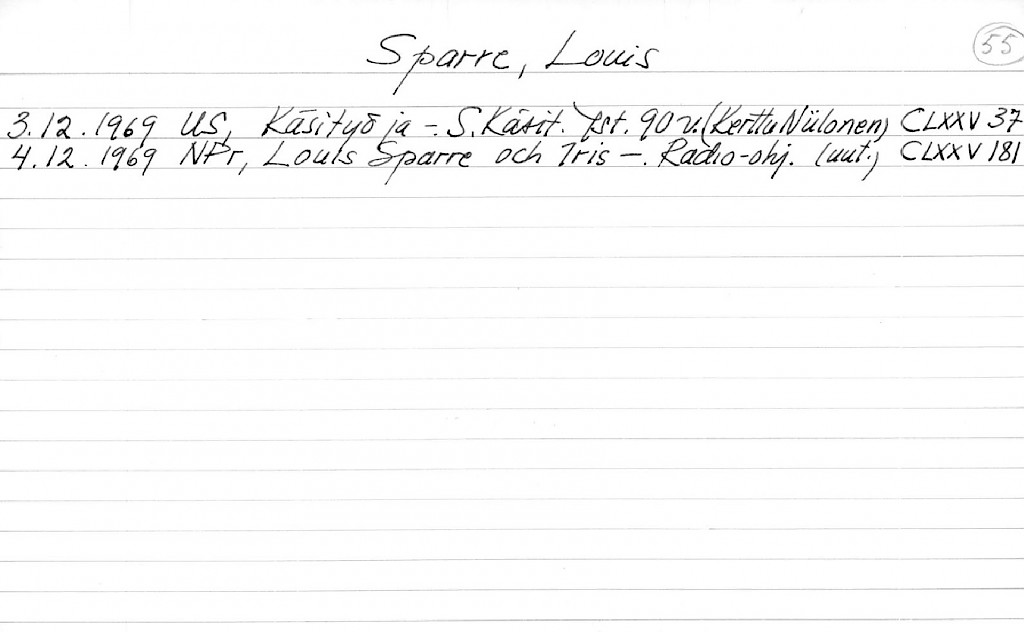 Sparre, Louis
55
3.12.1969 US, Käsityö ja -. S. Käsit. yst. 90 v. (Kerttu Niilonen) CLXXV 37
4.12.1969 NPr, Louis Sparre och Iris -. Radio-ohj. (uut.) CLXXV 181